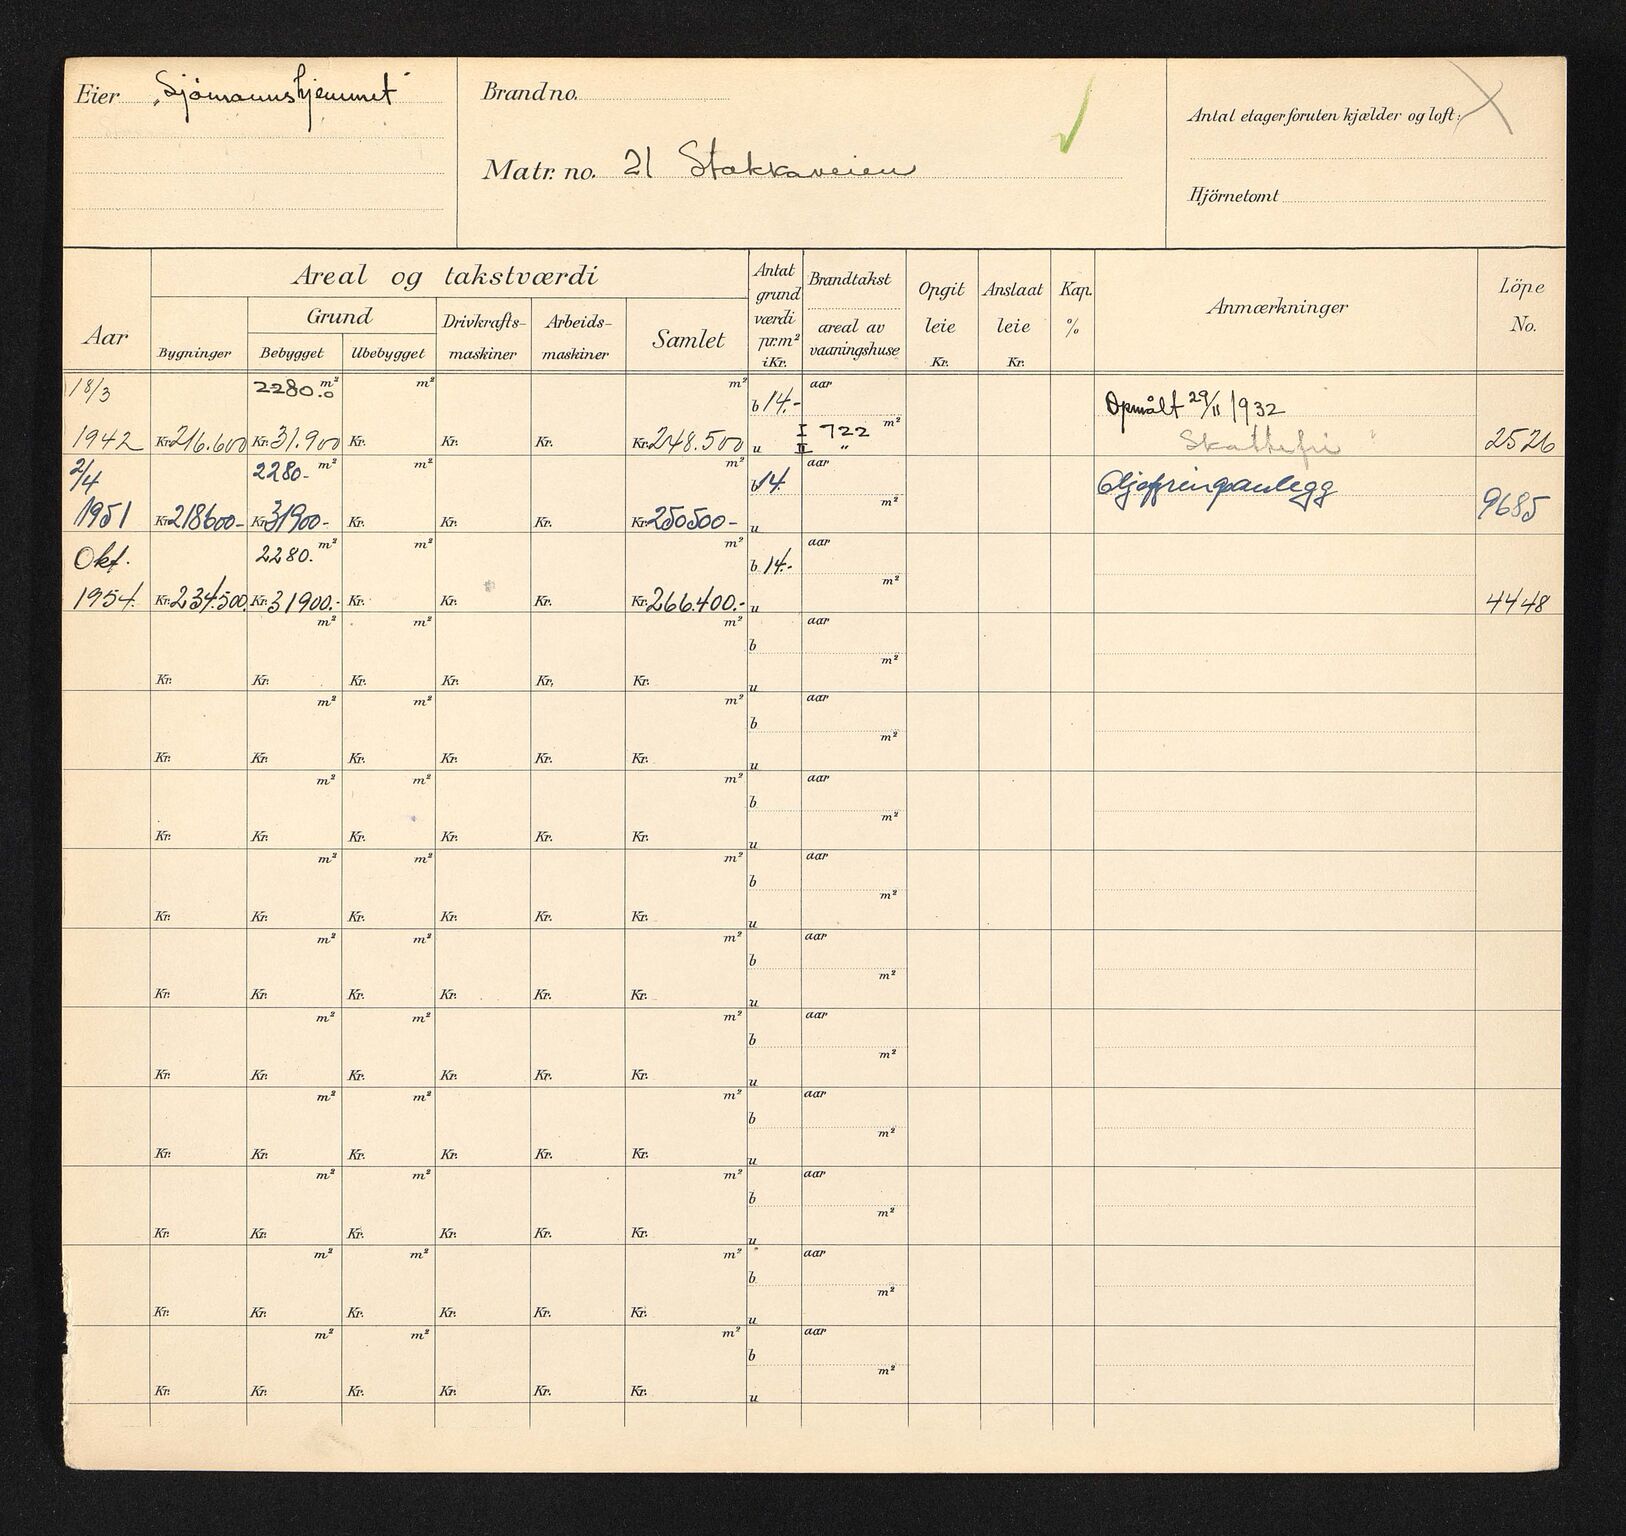 Eier „Sjömannshjemmet"
Brand no.
Matr. no. 21 Stakkaveien
Antal etager foruten kjælder og loft:
Hjörnetomt
Aar
Areal og takstværdi
Bygninger
Grund
Bebygget
Ubebygget
Drivkrafts-
maskiner
Arbeids-
maskiner
Samlet
Antat
grund
værdi
pr. m²
i Kr.
Brandtakst
areal av
vaaningshuse
Opgit
leie
Kr.
Anslaat
leie
Kr.
Kap.
%
Anmærkninger
Löpe
No.
18/3 2280.0 m² m² m² b 14.- aar Opmålt 29/11 1932
1942 Kr. 216.600 Kr. 31.900 Kr. Kr. Kr. Kr. 248.500 u I 722 m² II " Skattefri 2526
2/4 2280.- m² m² m² b 14. aar Oljefyringsanlegg
1951 Kr. 218600- Kr. 31900- Kr. Kr. Kr. Kr. 250500- u m² 9685
Okt. 2280. m² m² m² b 14.- aar
1954. Kr. 234.500. Kr. 31900.- Kr. Kr. Kr. Kr. 266.400.- u m² 4448
m² m² m² b aar
Kr. Kr. Kr. Kr. Kr. Kr. u m²
m² m² m² b aar
Kr. Kr. Kr. Kr. Kr. Kr. u m²
m² m² m² b aar
Kr. Kr. Kr. Kr. Kr. Kr. u m²
m² m² m² b aar
Kr. Kr. Kr. Kr. Kr. Kr. u m²
m² m² m² b aar
Kr. Kr. Kr. Kr. Kr. Kr. u m²
m² m² m² b aar
Kr. Kr. Kr. Kr. Kr. Kr. u m²
m² m² m² b aar
Kr. Kr. Kr. Kr. Kr. Kr. u m²
m² m² m² b aar
Kr. Kr. Kr. Kr. Kr. Kr. u m²
m² m² m² b aar
Kr. Kr. Kr. Kr. Kr. Kr. u m²
m² m² m² b aar
Kr. Kr. Kr. Kr. Kr. Kr. u m²